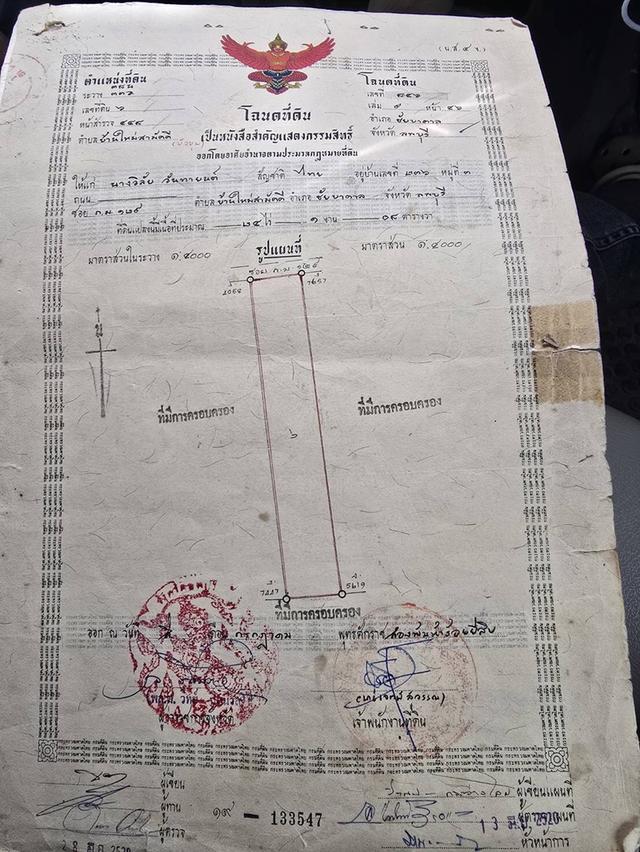 (น.ส.๔ จ.)
ตำแหน่งที่ดิน
ระวาง
เลขที่ดิน ๖
หน้าสำรวจ ๔๔๙
ตำบล บ้านใหม่สามัคคี
โฉนดที่ดิน
เลขที่ ๘๔๖
เล่ม ๙ หน้า ๔๖
อำเภอ ชัยบาดาล
จังหวัด ลพบุรี
โฉนดที่ดิน
เป็นหนังสือสำคัญแสดงกรรมสิทธิ์
ออกโดยอาศัยอำนาจตามประมวลกฎหมายที่ดิน
ให้แก่ นางวิลัย วันทายนต์ สัญชาติ ไทย อยู่บ้านเลขที่ ๒๓๖ หมู่ที่ ๓
ถนน ตำบล บ้านใหม่สามัคคี อำเภอ ชัยบาดาล จังหวัด ลพบุรี
ซอย ก.ม ๑๒๕
ที่ดินแปลงนี้มีเนื้อที่ประมาณ ๒๔ ไร่ ๑ งาน ๐๘ ตารางวา
รูปแผนที่
มาตราส่วนในระวาง ๑:๔๐๐๐
มาตราส่วน ๑:๔๐๐๐
ซอย ก.ม ๑๒๕
น
ที่มีการครอบครอง
ที่มีการครอบครอง
๖
5619
ที่มีการครอบครอง
ออก ณ วันที่ เดือน กรกฎาคม พุทธศักราช สองพันห้าร้อยยี่สิบ
เจ้าพนักงานที่ดิน
ผู้เขียน
ผู้ทาน
ผู้ตรวจ
๑๙ — 133547
ผู้เขียนแผนที่
ผู้ตรวจแผนที่
หัวหน้าการ